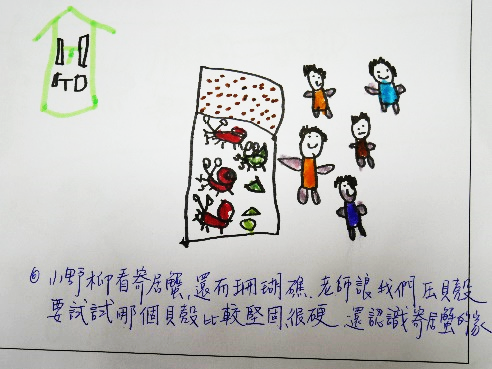 ⑥ 小野柳看寄居蟹,還有珊瑚礁、老師讓我們压貝殼
要試試那個貝殼比較堅固,很硬 還認識寄居蟹的家